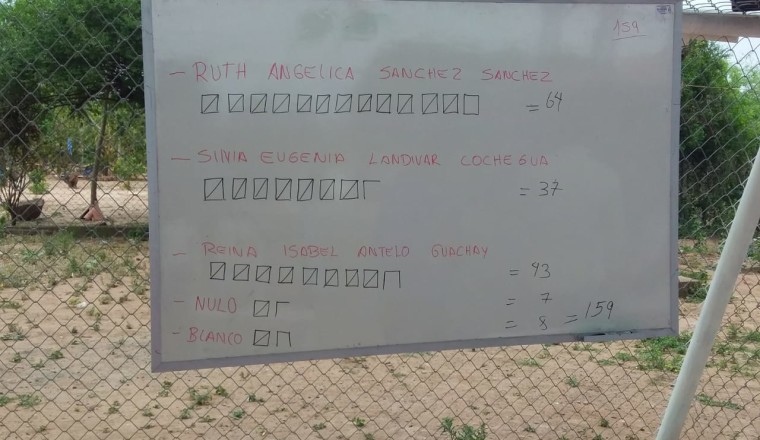 159
- RUTH ANGELICA SANCHEZ SANCHEZ
= 64
- SILVIA EUGENIA LANDIVAR COCHEGUA
= 37
- REINA ISABEL ANTELO GUACHAY
= 43
- NULO = 7
- BLANCO = 8 = 159